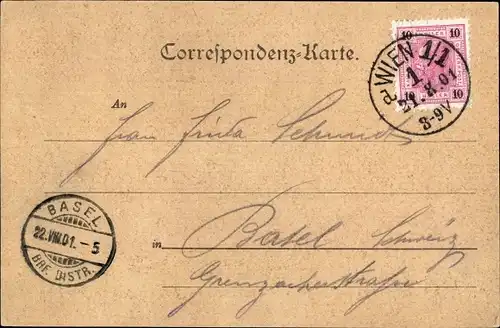 Correspondenz-Karte.
10 10
WIEN 1/1
1
8-9V
10 10
An
Frida
BASEL
22.VIII.01.-5
BRF. DISTR.
in Basel Schweiz
Grenzacherstrasse